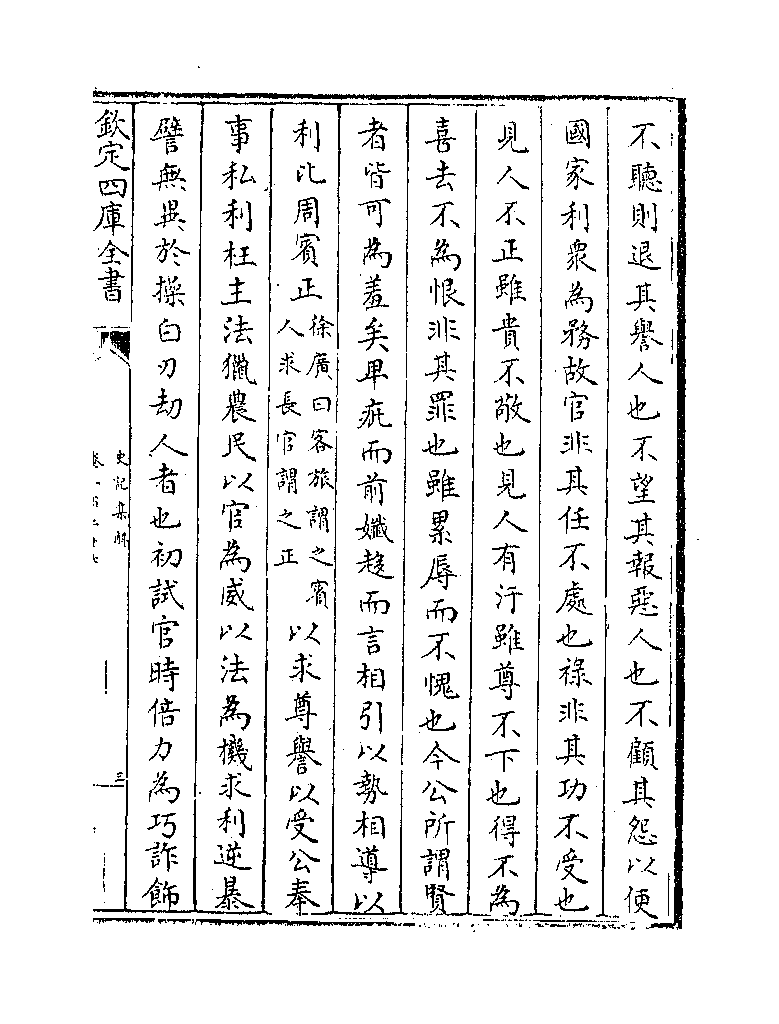 不聽則退其譽人也不望其報惡人也不顧其怨以便
國家利衆為務故官非其任不處也祿非其功不受也
見人不正雖貴不敬也見人有汙雖尊不下也得不為
喜去不為恨非其罪也雖累辱而不愧也今公所謂賢
者皆可為羞矣卑疵而前孅趨而言相引以勢相導以
利比周賓正
徐廣曰客旅謂之賓
人求長官謂之正
以求尊譽以受公奉
事私利枉主法獵農民以官為威以法為機求利逆暴
譬無異於操白刃劫人者也初試官時倍力為巧詐飾
欽定四庫全書
史記集解
三